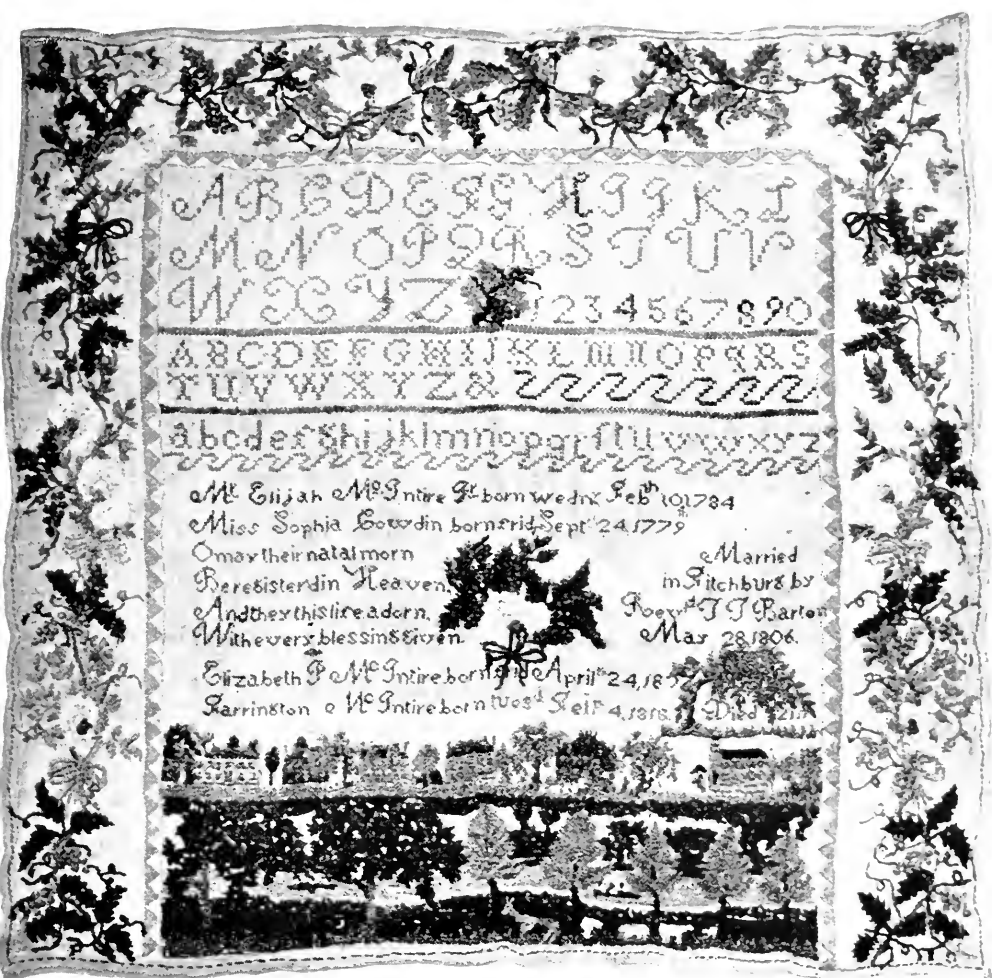 A B C D E F G H I J K L
M N O P Q R S T U V
W X Y Z 1 2 3 4 5 6 7 8 9 0
A B C D E F G H I J K L M N O P Q R S
T U V W X Y Z &
a b c d e f g h i j k l m n o p q r ſ t u v w x y z
Mr Elijah Mc Intire born wedns Febth 10 1784
Miss Sophia Cowdin born frid Septth 24, 1779
O may their natal morn
Be registerd in Heaven,
And they this life adorn,
With every blessing given.
Married
in Fitchburg by
Revd T T Barton
May 28, 1806.
Elizabeth P Mc Intire born April 24,
Farrington Mc Intire born tuesd Feb 4, 1818.
Died